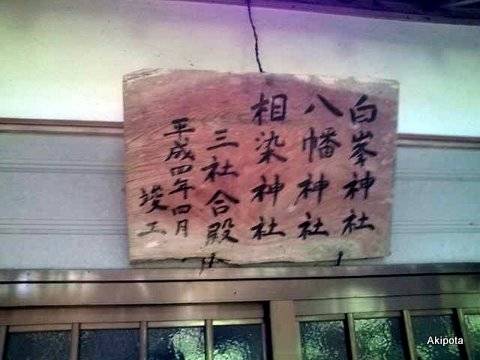 白峯神社
八幡神社
相染神社
三社合殿
平成四年四月
竣工
Akipota